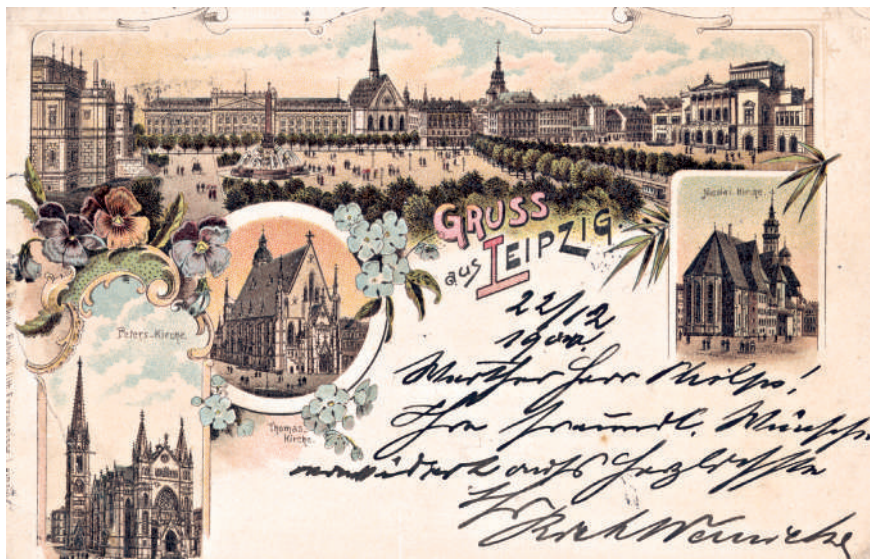 GRUSS
aus LEIPZIG.
Nicolai-Kirche.
Peters-Kirche
Thomas-
Kirche.
22/12
1900.
Werther Herr
Ihre freundl. Wünsche
erwidert aufs herzlichste
Ihr
Wernicke